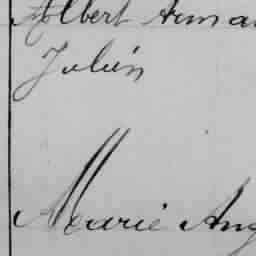 Albert Arma
Julien
Marie Ang